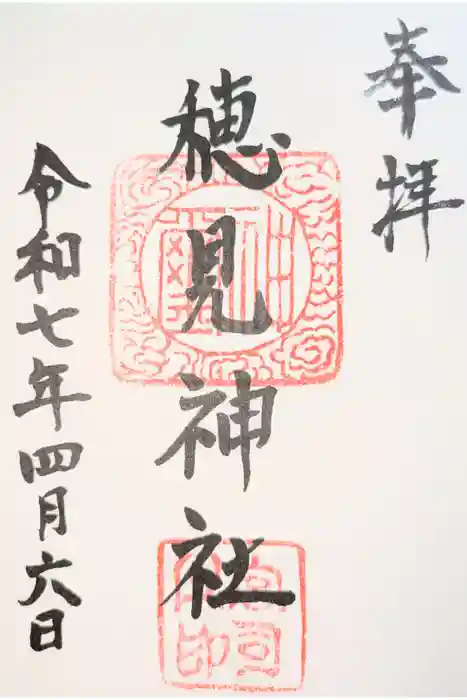 奉拝
穂見神社
令和七年四月六日